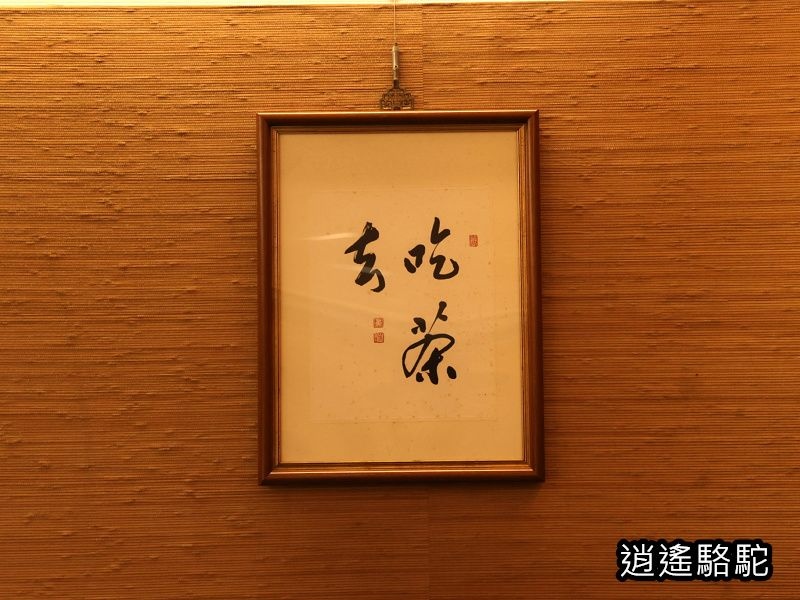 吃茶
去
逍遙駱駝